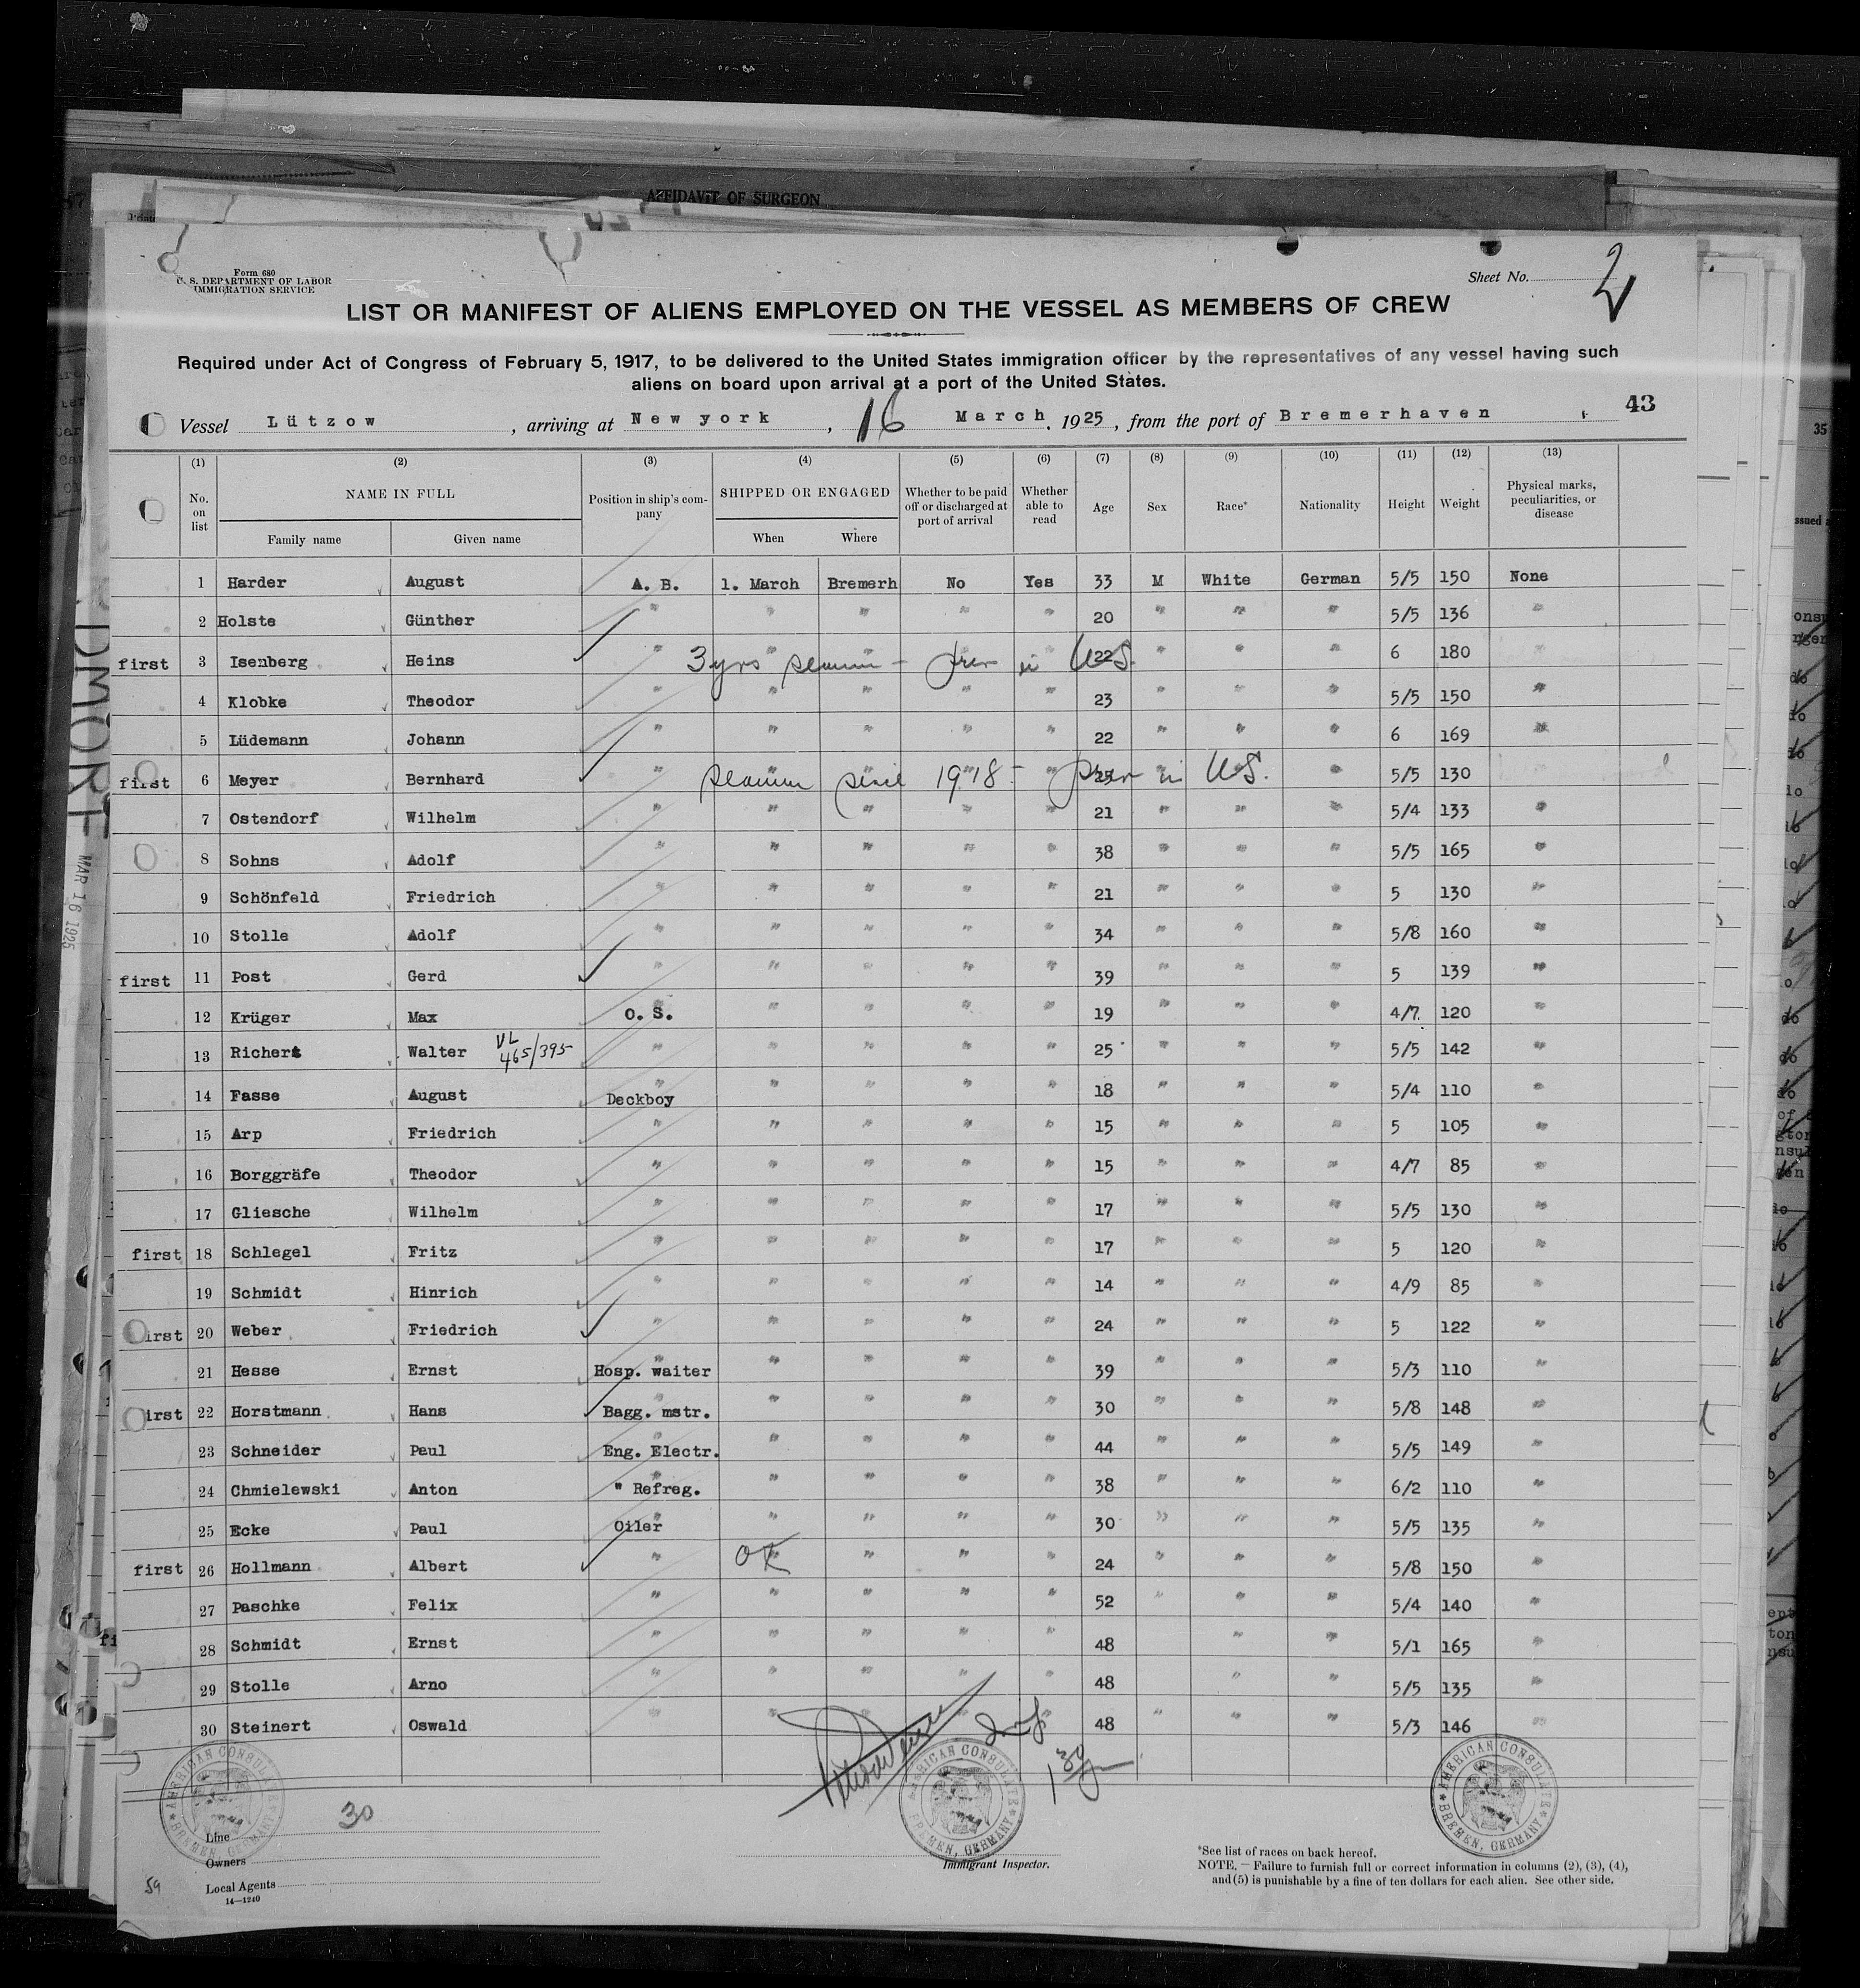 AFFIDAVIT OF SURGEON
Form 680
U. S. DEPARTMENT OF LABOR
IMMIGRATION SERVICE
Sheet No. 2
LIST OR MANIFEST OF ALIENS EMPLOYED ON THE VESSEL AS MEMBERS OF CREW
Required under Act of Congress of February 5, 1917, to be delivered to the United States immigration officer by the representatives of any vessel having such
aliens on board upon arrival at a port of the United States.
Vessel Lützow, arriving at New york, 16 March, 1925, from the port of Bremerhaven 43
(1) (2) (3) (4) (5) (6) (7) (8) (9) (10) (11) (12) (13)
No. on list NAME IN FULL Position in ship's company SHIPPED OR ENGAGED Whether to be paid off or discharged at port of arrival Whether able to read Age Sex Race* Nationality Height Weight Physical marks, peculiarities, or disease
Family name Given name When Where
1 Harder August A. B. 1. March Bremerh No Yes 33 M White German 5/5 150 None
2 Holste Günther " " " " " 20 " " " 5/5 136 "
first 3 Isenberg Heins " " " " " 22 " " " 6 180 "
3 yrs seaman - prev in U.S.
4 Klobke Theodor " " " " " 23 " " " 5/5 150 "
5 Lüdemann Johann " " " " " 22 " " " 6 169 "
first 6 Meyer Bernhard " " " " " 25 " " " 5/5 130
seaman since 1918 - prev in U.S.
7 Ostendorf Wilhelm " " " " " 21 " " " 5/4 133 "
8 Sohns Adolf " " " " " 38 " " " 5/5 165 "
9 Schönfeld Friedrich " " " " " 21 " " " 5 130 "
10 Stolle Adolf " " " " " 34 " " " 5/8 160 "
first 11 Post Gerd " " " " " 39 " " " 5 139 "
12 Krüger Max O. S. " " " " 19 " " " 4/7 120 "
13 Richert Walter VL 465/395 " " " " " 25 " " " 5/5 142 "
14 Fasse August Deckboy " " " " 18 " " " 5/4 110 "
15 Arp Friedrich " " " " " 15 " " " 5 105 "
16 Borggräfe Theodor " " " " " 15 " " " 4/7 85 "
17 Gliesche Wilhelm " " " " " 17 " " " 5/5 130 "
first 18 Schlegel Fritz " " " " " 17 " " " 5 120 "
19 Schmidt Hinrich " " " " " 14 " " " 4/9 85 "
first 20 Weber Friedrich " " " " " 24 " " " 5 122 "
21 Hesse Ernst Hosp. waiter " " " " 39 " " " 5/3 110 "
first 22 Horstmann Hans Bagg. mstr. " " " " 30 " " " 5/8 148 "
23 Schneider Paul Eng. Electr. " " " " 44 " " " 5/5 149 "
24 Chmielewski Anton " Refreg. " " " " 38 " " " 6/2 110 "
25 Ecke Paul Oiler " " " " 30 " " " 5/5 135 "
first 26 Hollmann Albert " OK " " " 24 " " " 5/8 150 "
27 Paschke Felix " " " " " 52 " " " 5/4 140 "
28 Schmidt Ernst " " " " " 48 " " 5/1 165 "
29 Stolle Arno " " " " " 48 " " 5/5 135 "
30 Steinert Oswald " " " " " 48 " " " 5/3 146 "
AMERICAN CONSULATE BREMEN, GERMANY
AMERICAN CONSULATE BREMEN, GERMANY
AMERICAN CONSULATE BREMEN, GERMANY
30
Line
Owners
Local Agents
14—1240
59
Immigrant Inspector.
*See list of races on back hereof.
NOTE. — Failure to furnish full or correct information in columns (2), (3), (4),
and (5) is punishable by a fine of ten dollars for each alien. See other side.
MAR 16 1925
35